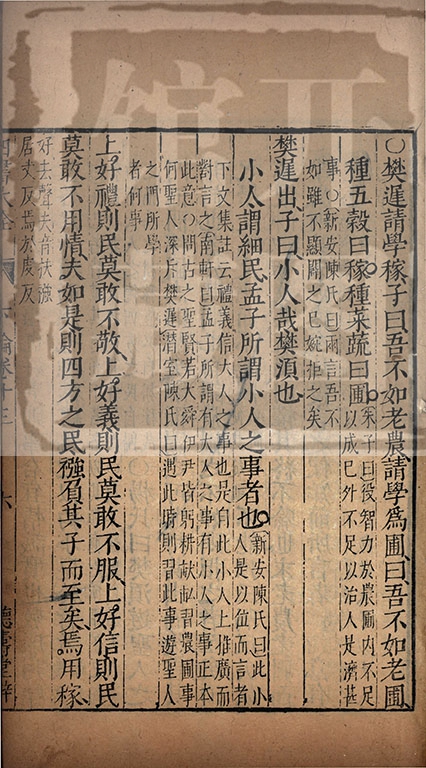 ○樊遲請學稼子曰吾不如老農請學爲圃曰吾不如老圃
種五穀曰稼種菜蔬曰圃
朱子曰役智力於農圃內不足
以成己外不足以治人是濟甚
事○新安陳氏曰兩言吾不
如雖不顯闢之已婉拒之矣
樊遲出子曰小人哉樊須也
小人謂細民孟子所謂小人之事者也
新安陳氏曰此小
人是以位而言者
下文集註云禮義信大人之事也是自此小人上推廣而
對言之南軒曰孟子所謂有大人之事有小人之事正本
此意○問古之聖賢若大舜伊尹皆躬耕畎畝習農圃事
何聖人深斥樊遲潛室陳氏曰遇此時則習此事遊聖人
之門所學
者何事
上好禮則民莫敢不敬上好義則民莫敢不服上好信則民
莫敢不用情夫如是則四方之民襁負其子而至矣焉用稼
好去聲夫音扶襁
居丈反焉於虔反
四書大全
論 十三
六
德壽堂梓